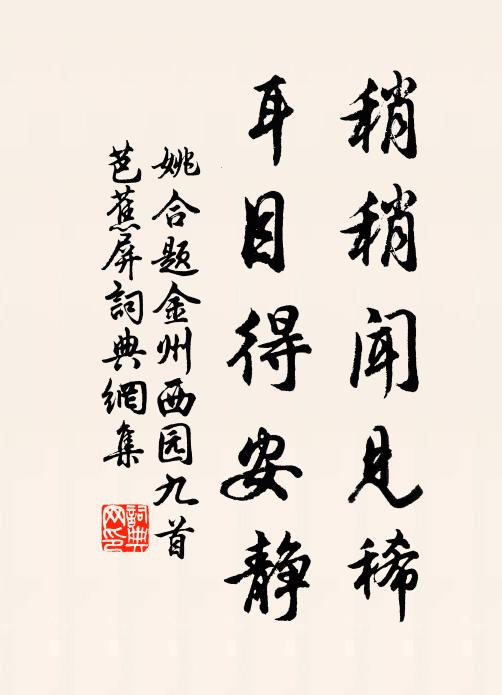 稍稍闻见稀
耳目得安静
姚合题金州西园九首
芭蕉屏詞典網集
詞典
网印